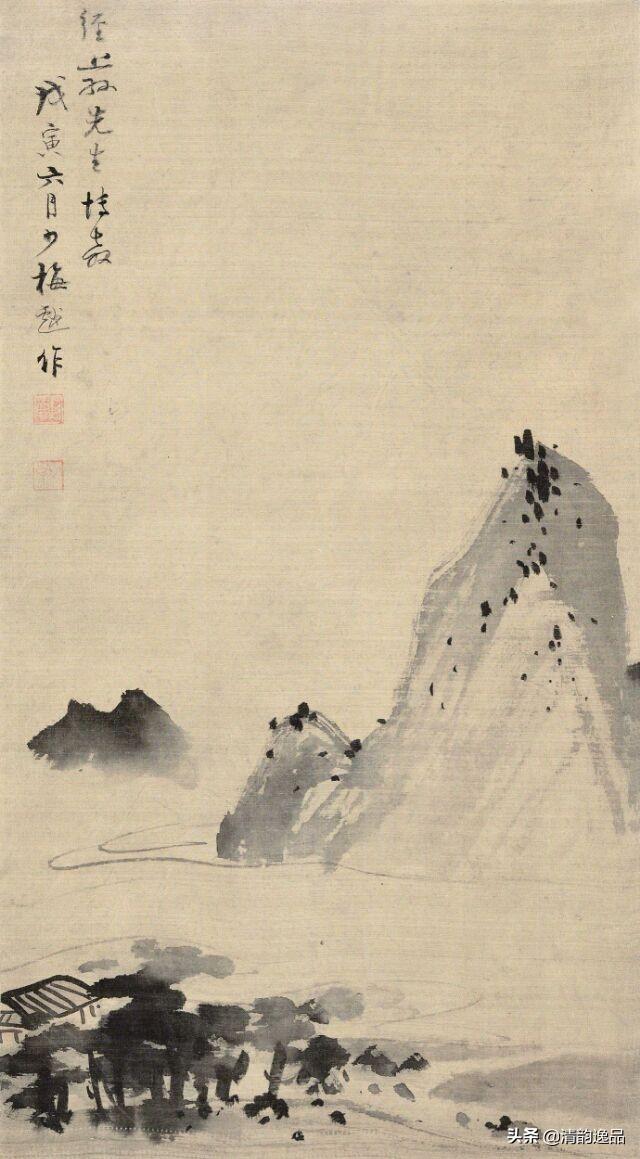 先生博教
戊寅六月少梅戲作
头条 @清韵逸品